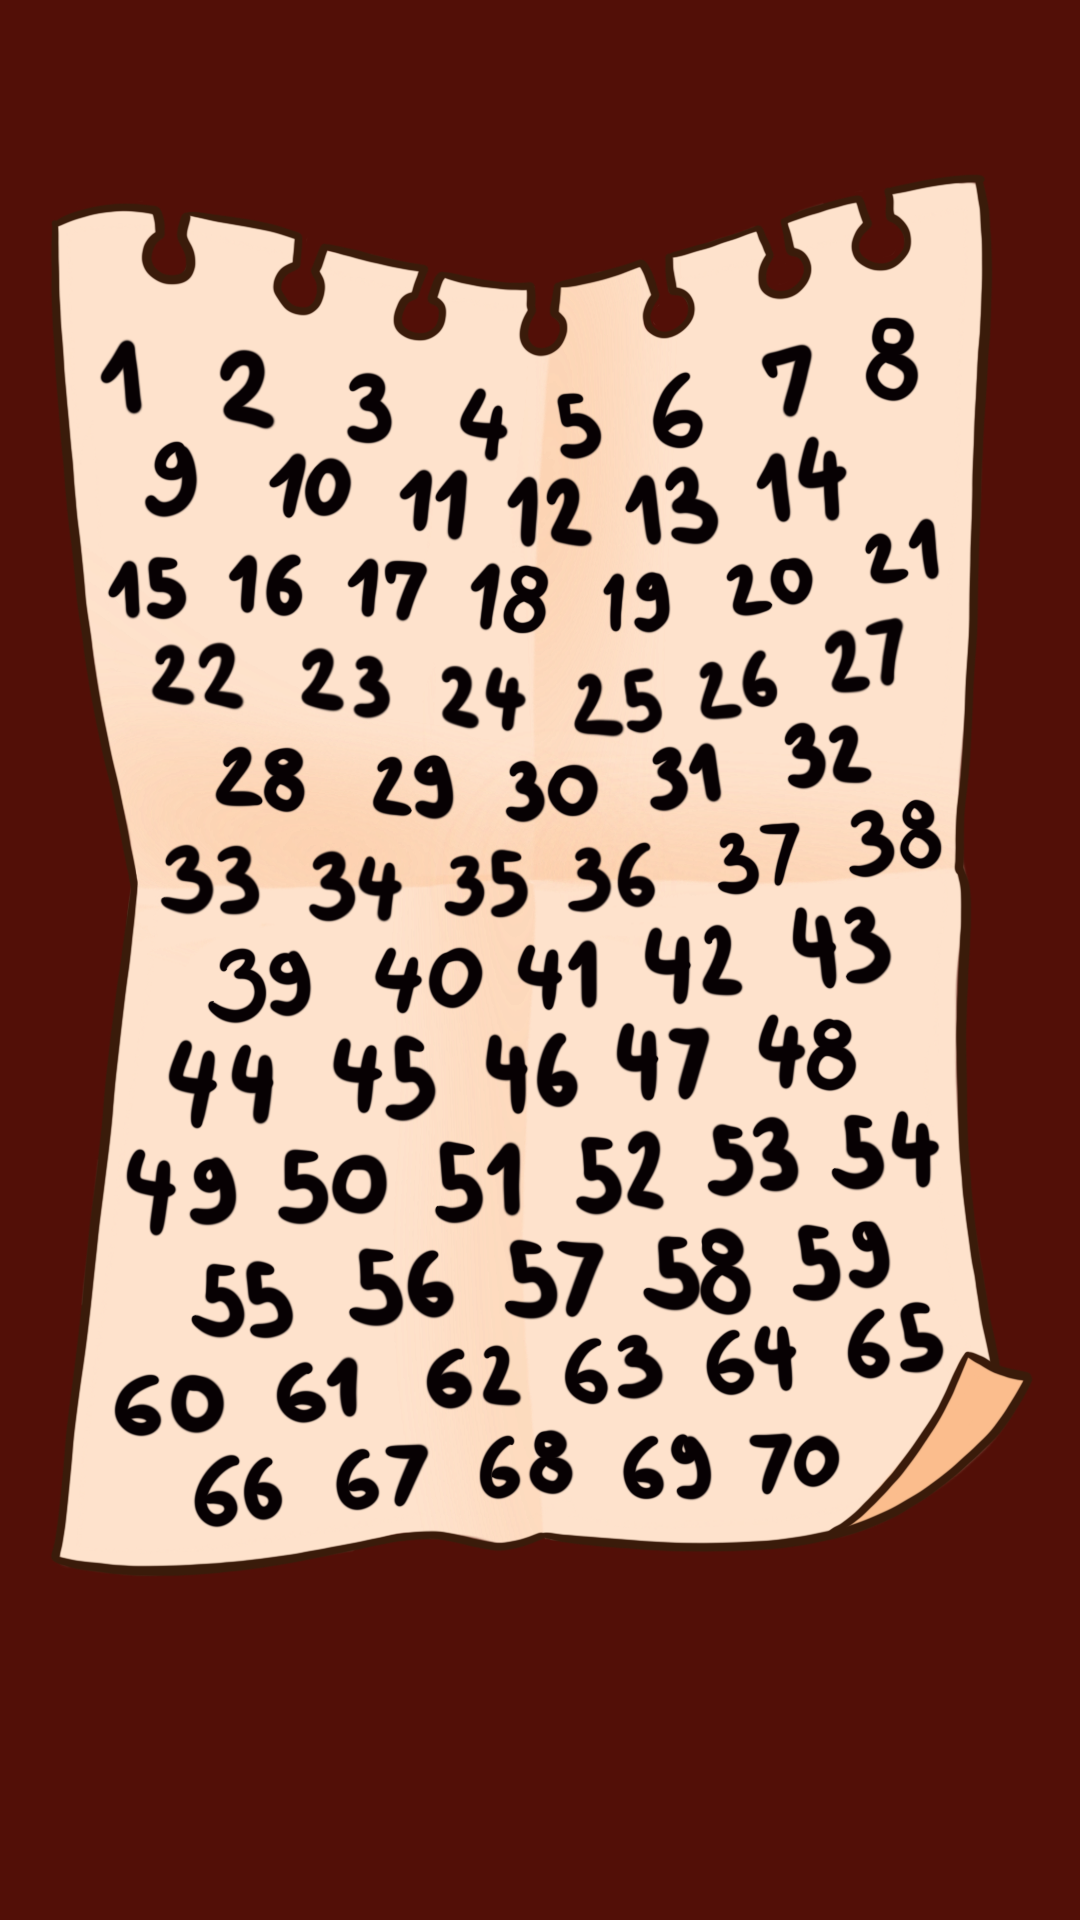 1 2 3 4 5 6 7 8
9 10 11 12 13 14
15 16 17 18 19 20 21
22 23 24 25 26 27
28 29 30 31 32
33 34 35 36 37 38
39 40 41 42 43
44 45 46 47 48
49 50 51 52 53 54
55 56 57 58 59
60 61 62 63 64 65
66 67 68 69 70